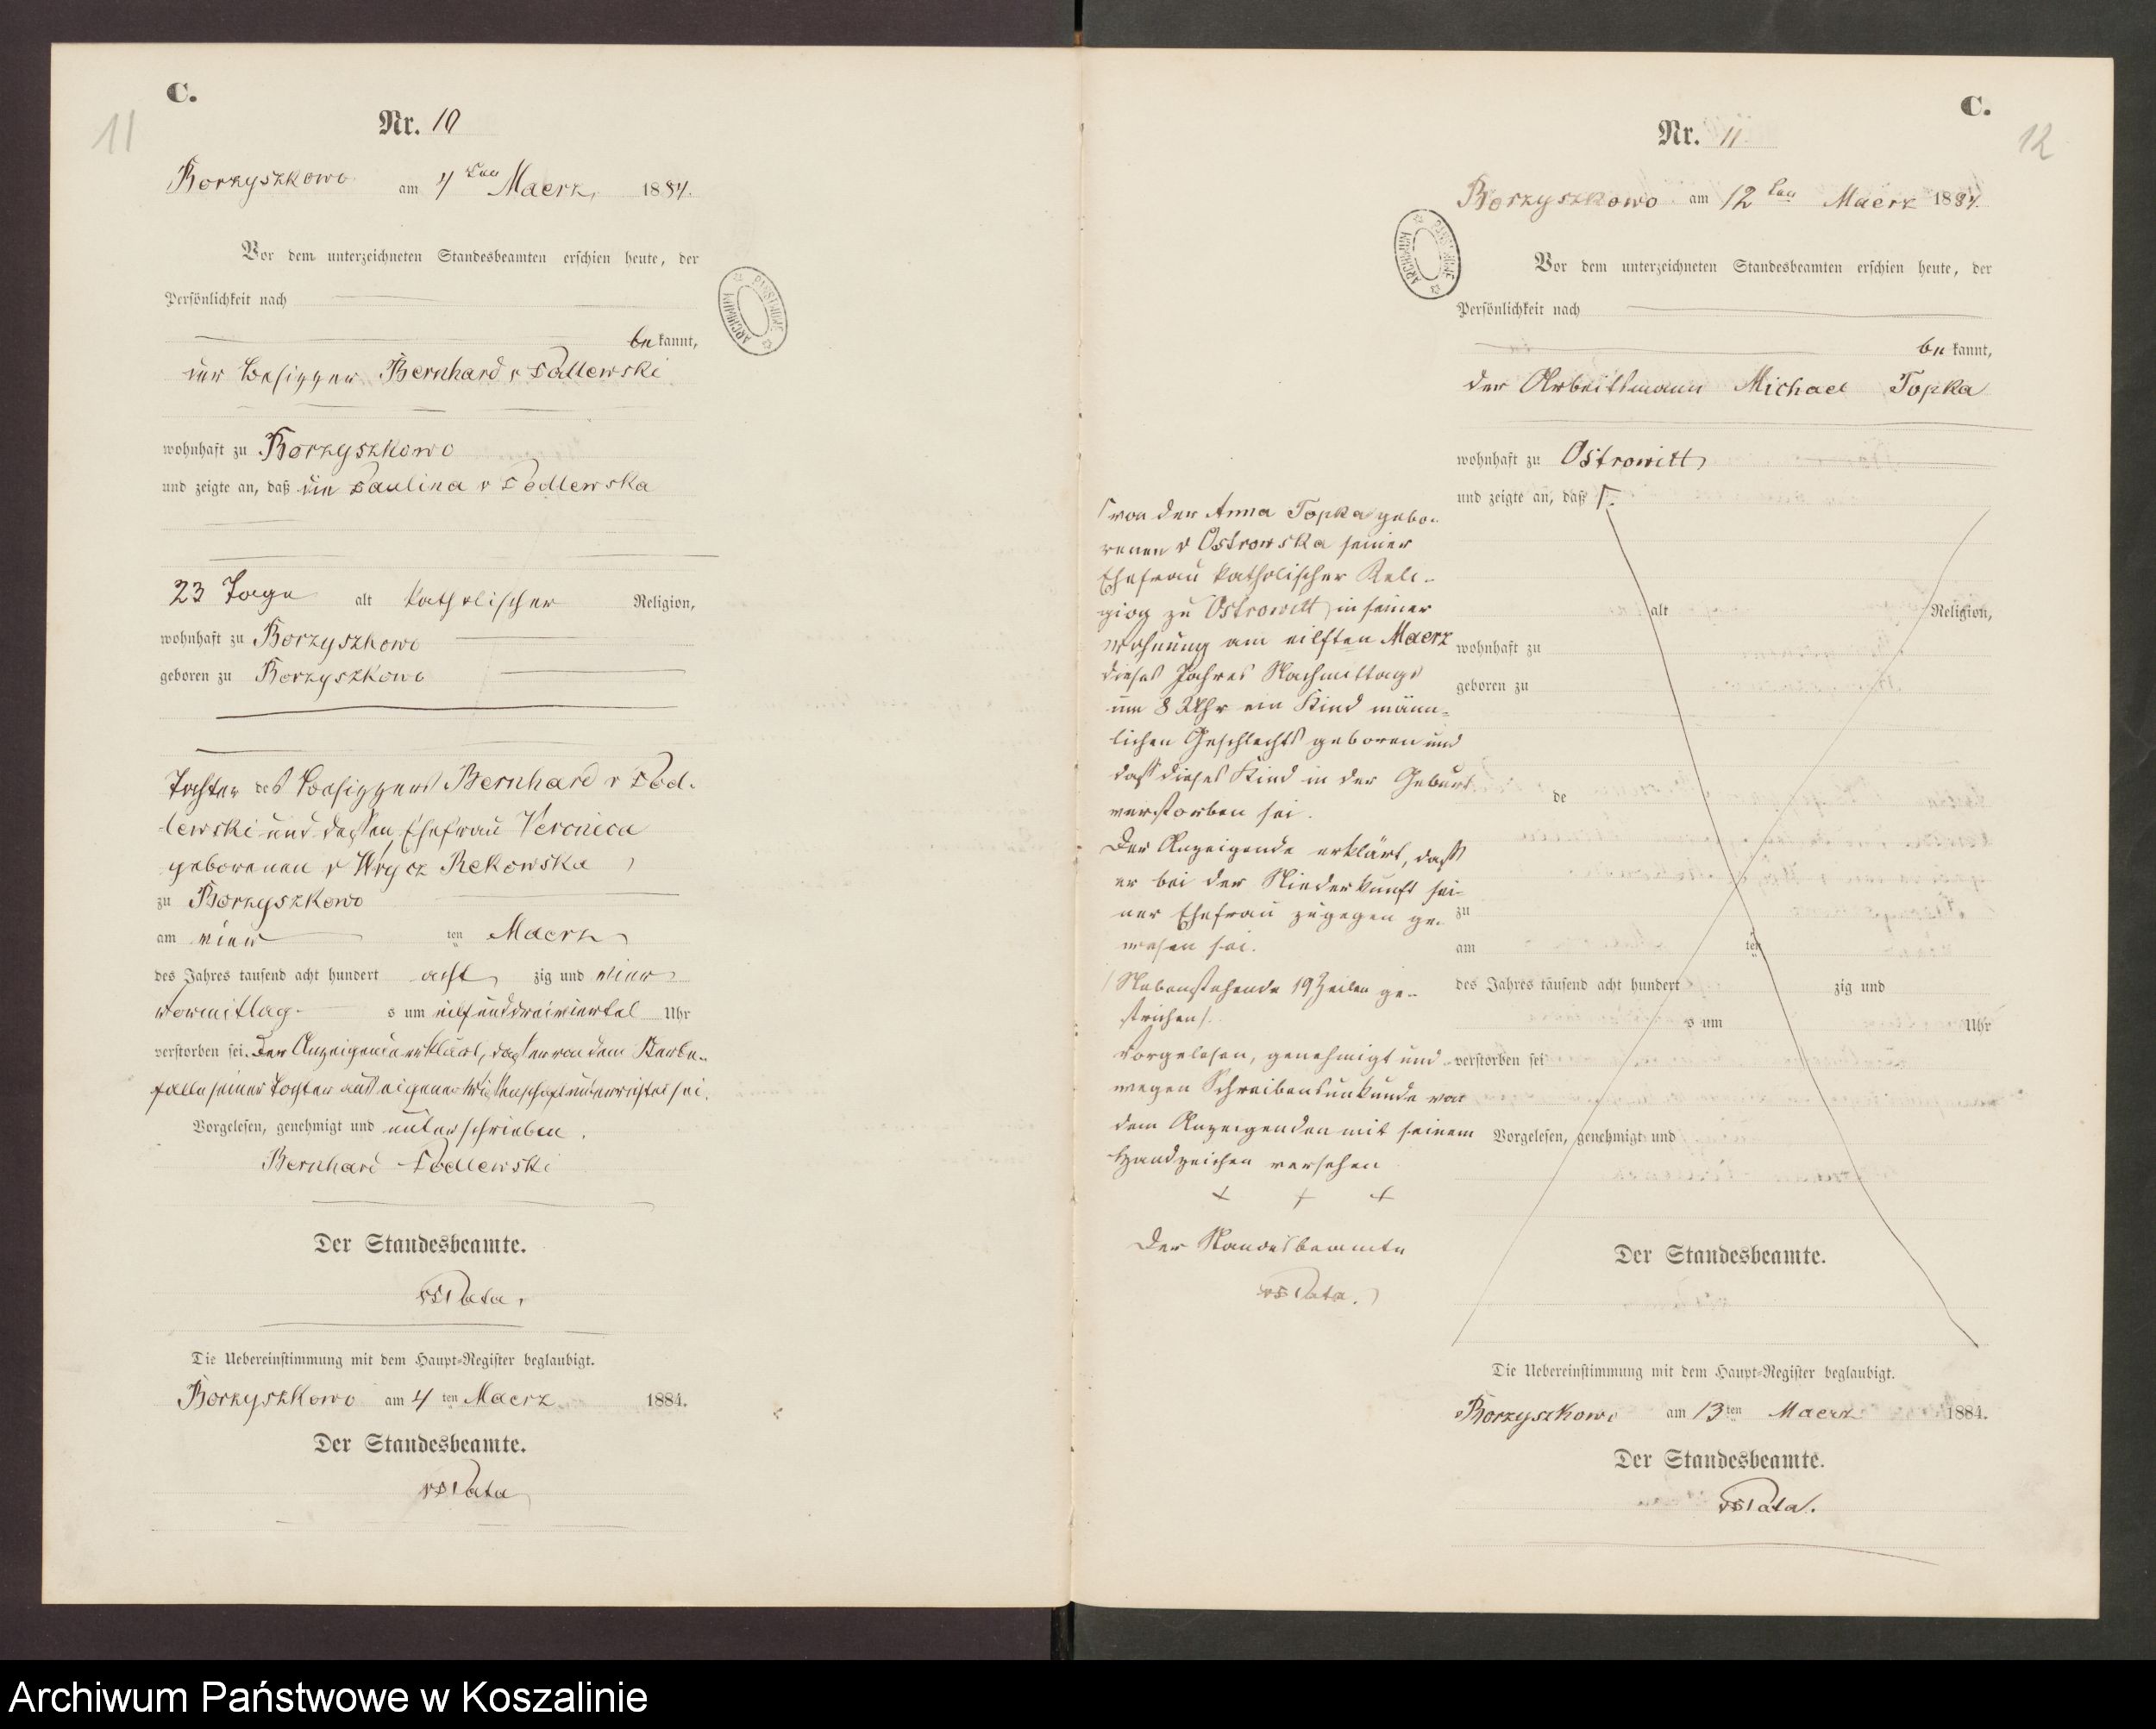 C.
11
Nr. 10
Borzyszkowo am 4ten Maerz 1884.
Vor dem unterzeichneten Standesbeamten erschien heute, der
Persönlichkeit nach
be kannt,
der Besitzer Bernhard v Podlewski
wohnhaft zu Borzyszkowo
und zeigte an, daß die Paulina v Podlewska
23 Tage alt katholischer Religion,
wohnhaft zu Borzyszkowo
geboren zu Borzyszkowo
Tochter des Besitzers Bernhard v Pod-
lewski und dessen Ehefrau Veronica
geborenen v Wrycz Rekowska
zu Borzyszkowo
am vier ten Maerz
des Jahres tausend acht hundert acht zig und vier
Vormittag s um eilf und dreiviertel Uhr
verstorben sei. Der Anzeigende erklärt, daß er von dem Sterbe-
falle seiner Tochter aus eigener Wissenschaft unterrichtet sei.
Vorgelesen, genehmigt und unterschrieben.
Bernhard Podlewski
Der Standesbeamte.
Die Uebereinstimmung mit dem Haupt-Register beglaubigt.
Borzyszkowo am 4 ten Maerz 1884.
Der Standesbeamte.
ARCHIWUM PAŃSTWOWE
C.
12
Nr. 11
Borzyszkowo am 12ten Maerz 1884.
Vor dem unterzeichneten Standesbeamten erschien heute, der
Persönlichkeit nach
be kannt,
der Arbeitsmann Michael Topka
wohnhaft zu Ostrowitt
und zeigte an, daß
von der Anna Topka gebo-
renen v Ostrowska seiner
Ehefrau katholischer Reli-
gion zu Ostrowitt in seiner
Wohnung am eilften Maerz
dieses Jahres Nachmittags
um 8 Uhr ein Kind männ-
lichen Geschlechts geboren und
daß dieses Kind in der Geburt
verstorben sei.
Der Anzeigende erklärt, daß
er bei der Niederkunft sei-
ner Ehefrau zugegen ge-
wesen sei.
Nebenstehende 19 Zeilen ge-
strichen.
Vorgelesen, genehmigt und
wegen Schreibensunkunde von
dem Anzeigenden mit seinem
Handzeichen versehen
+ + +
Der Standesbeamte
alt Religion,
wohnhaft zu
geboren zu
de
zu
am ten
des Jahres tausend acht hundert zig und
s um Uhr
verstorben sei
Vorgelesen, genehmigt und
Der Standesbeamte.
Die Uebereinstimmung mit dem Haupt-Register beglaubigt.
Borzyszkowo am 13 ten Maerz 1884.
Der Standesbeamte.
ARCHIWUM PAŃSTWOWE
Archiwum Państwowe w Koszalinie